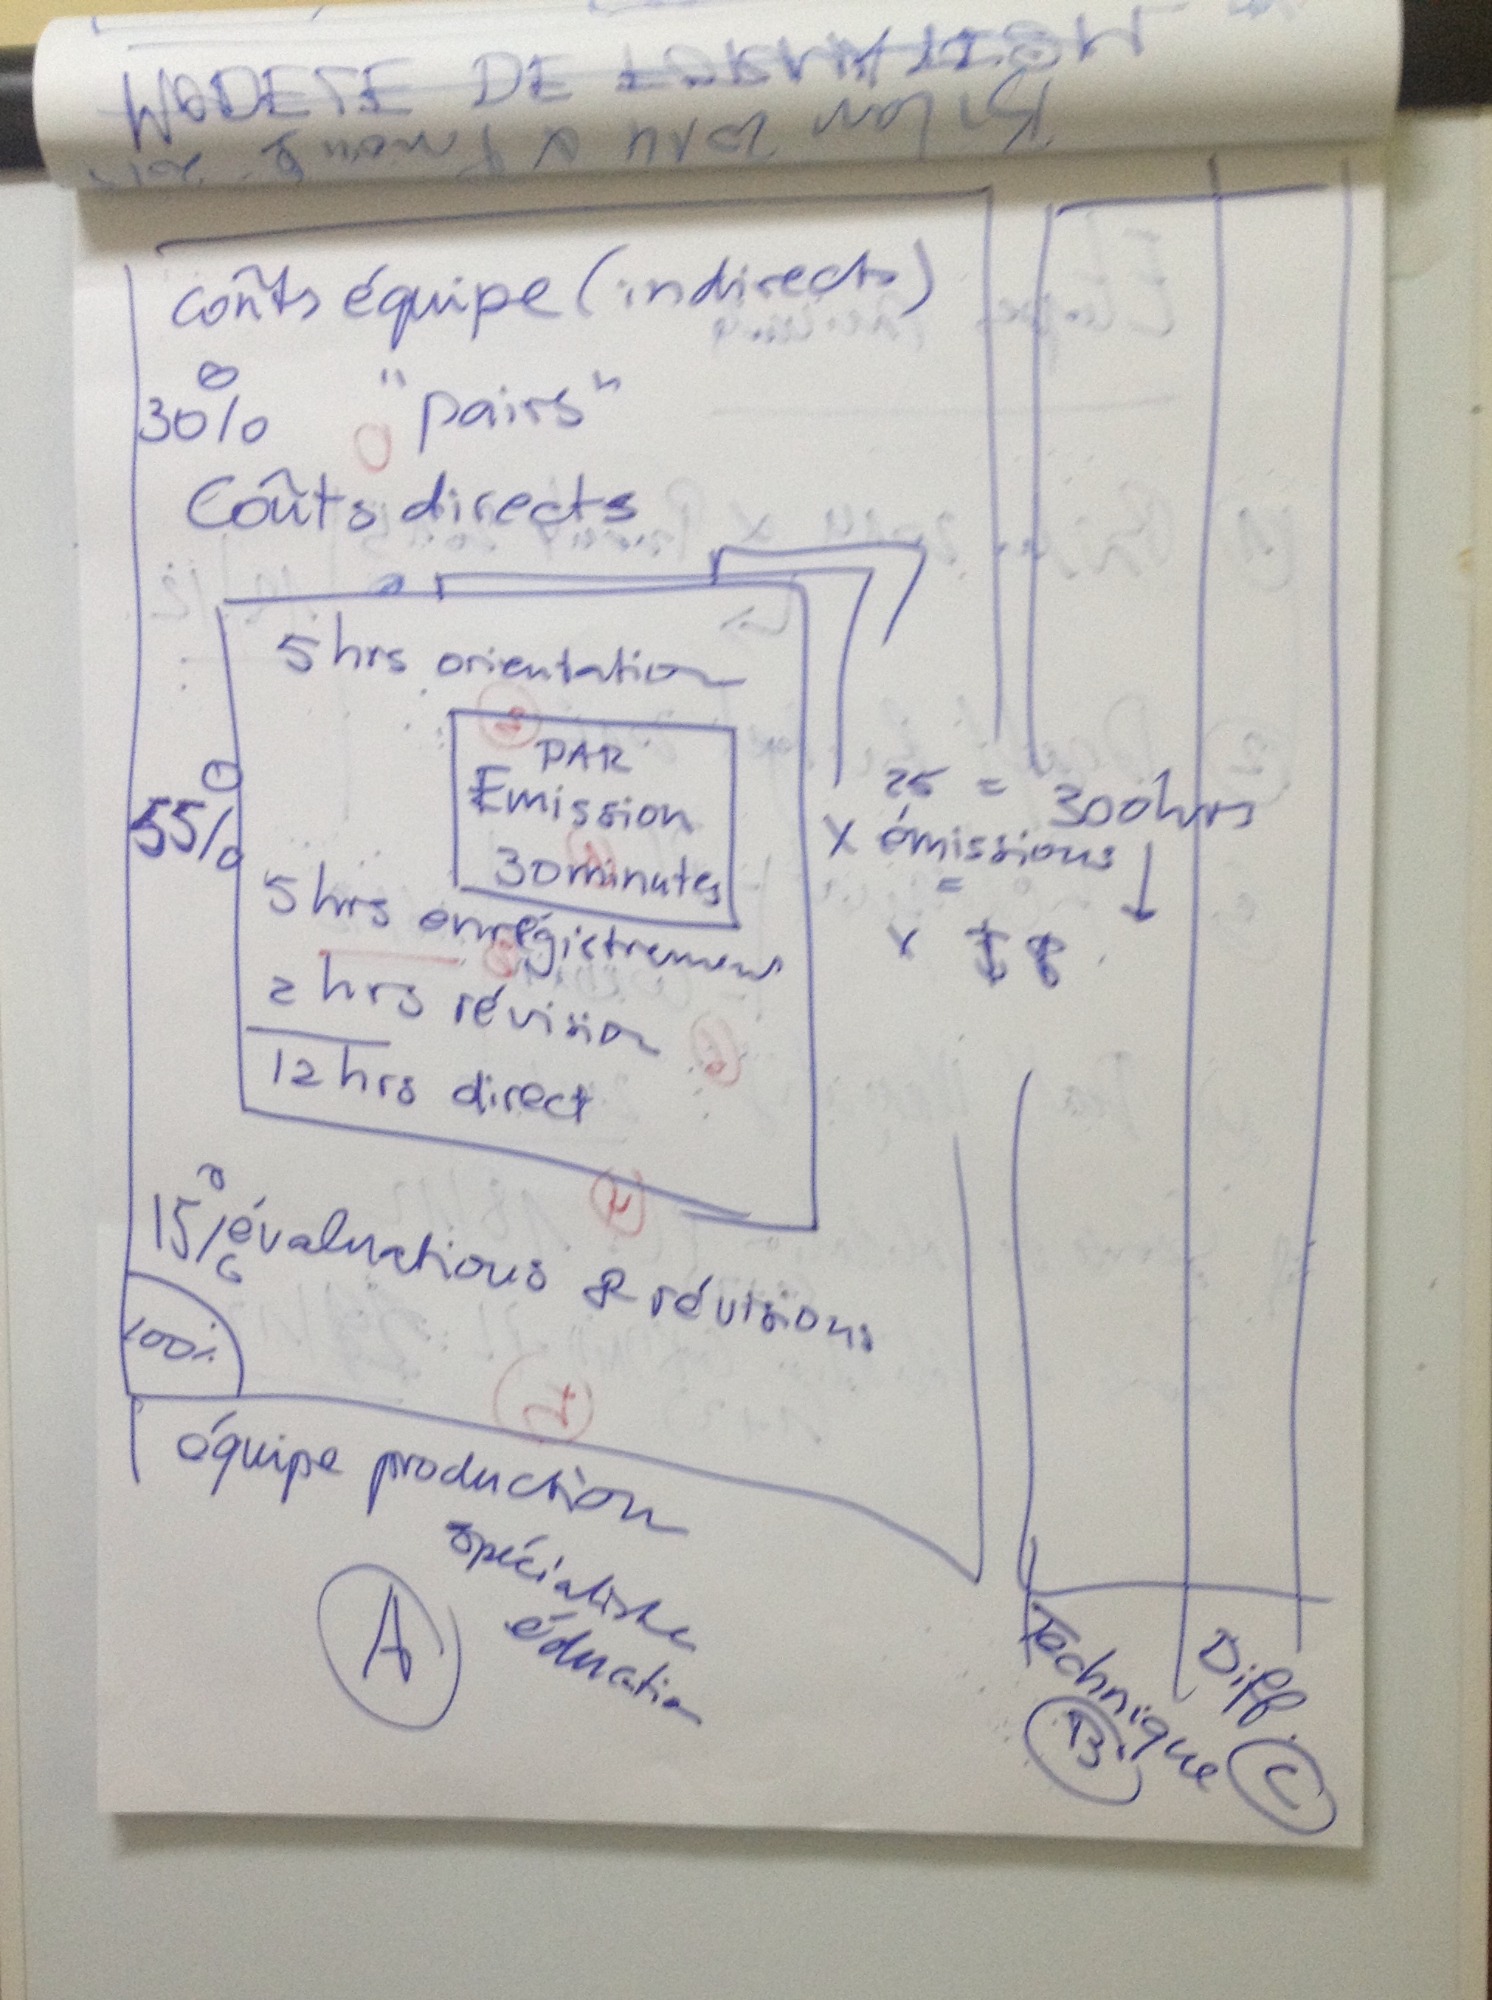 MODELE DE FORMATION
coûts équipe (indirects)
30% "pairs"
Coûts directs
5 hrs orientation
PAR
Emission
30 minutes
55%
5 hrs enrégistrement
2 hrs révision
12 hrs direct
25 = 300 hrs
x émissions
=
x $$
15% évaluations & révisions
100%
équipe production
spécialiste
éducation
A
Technique
B
Diff.
C